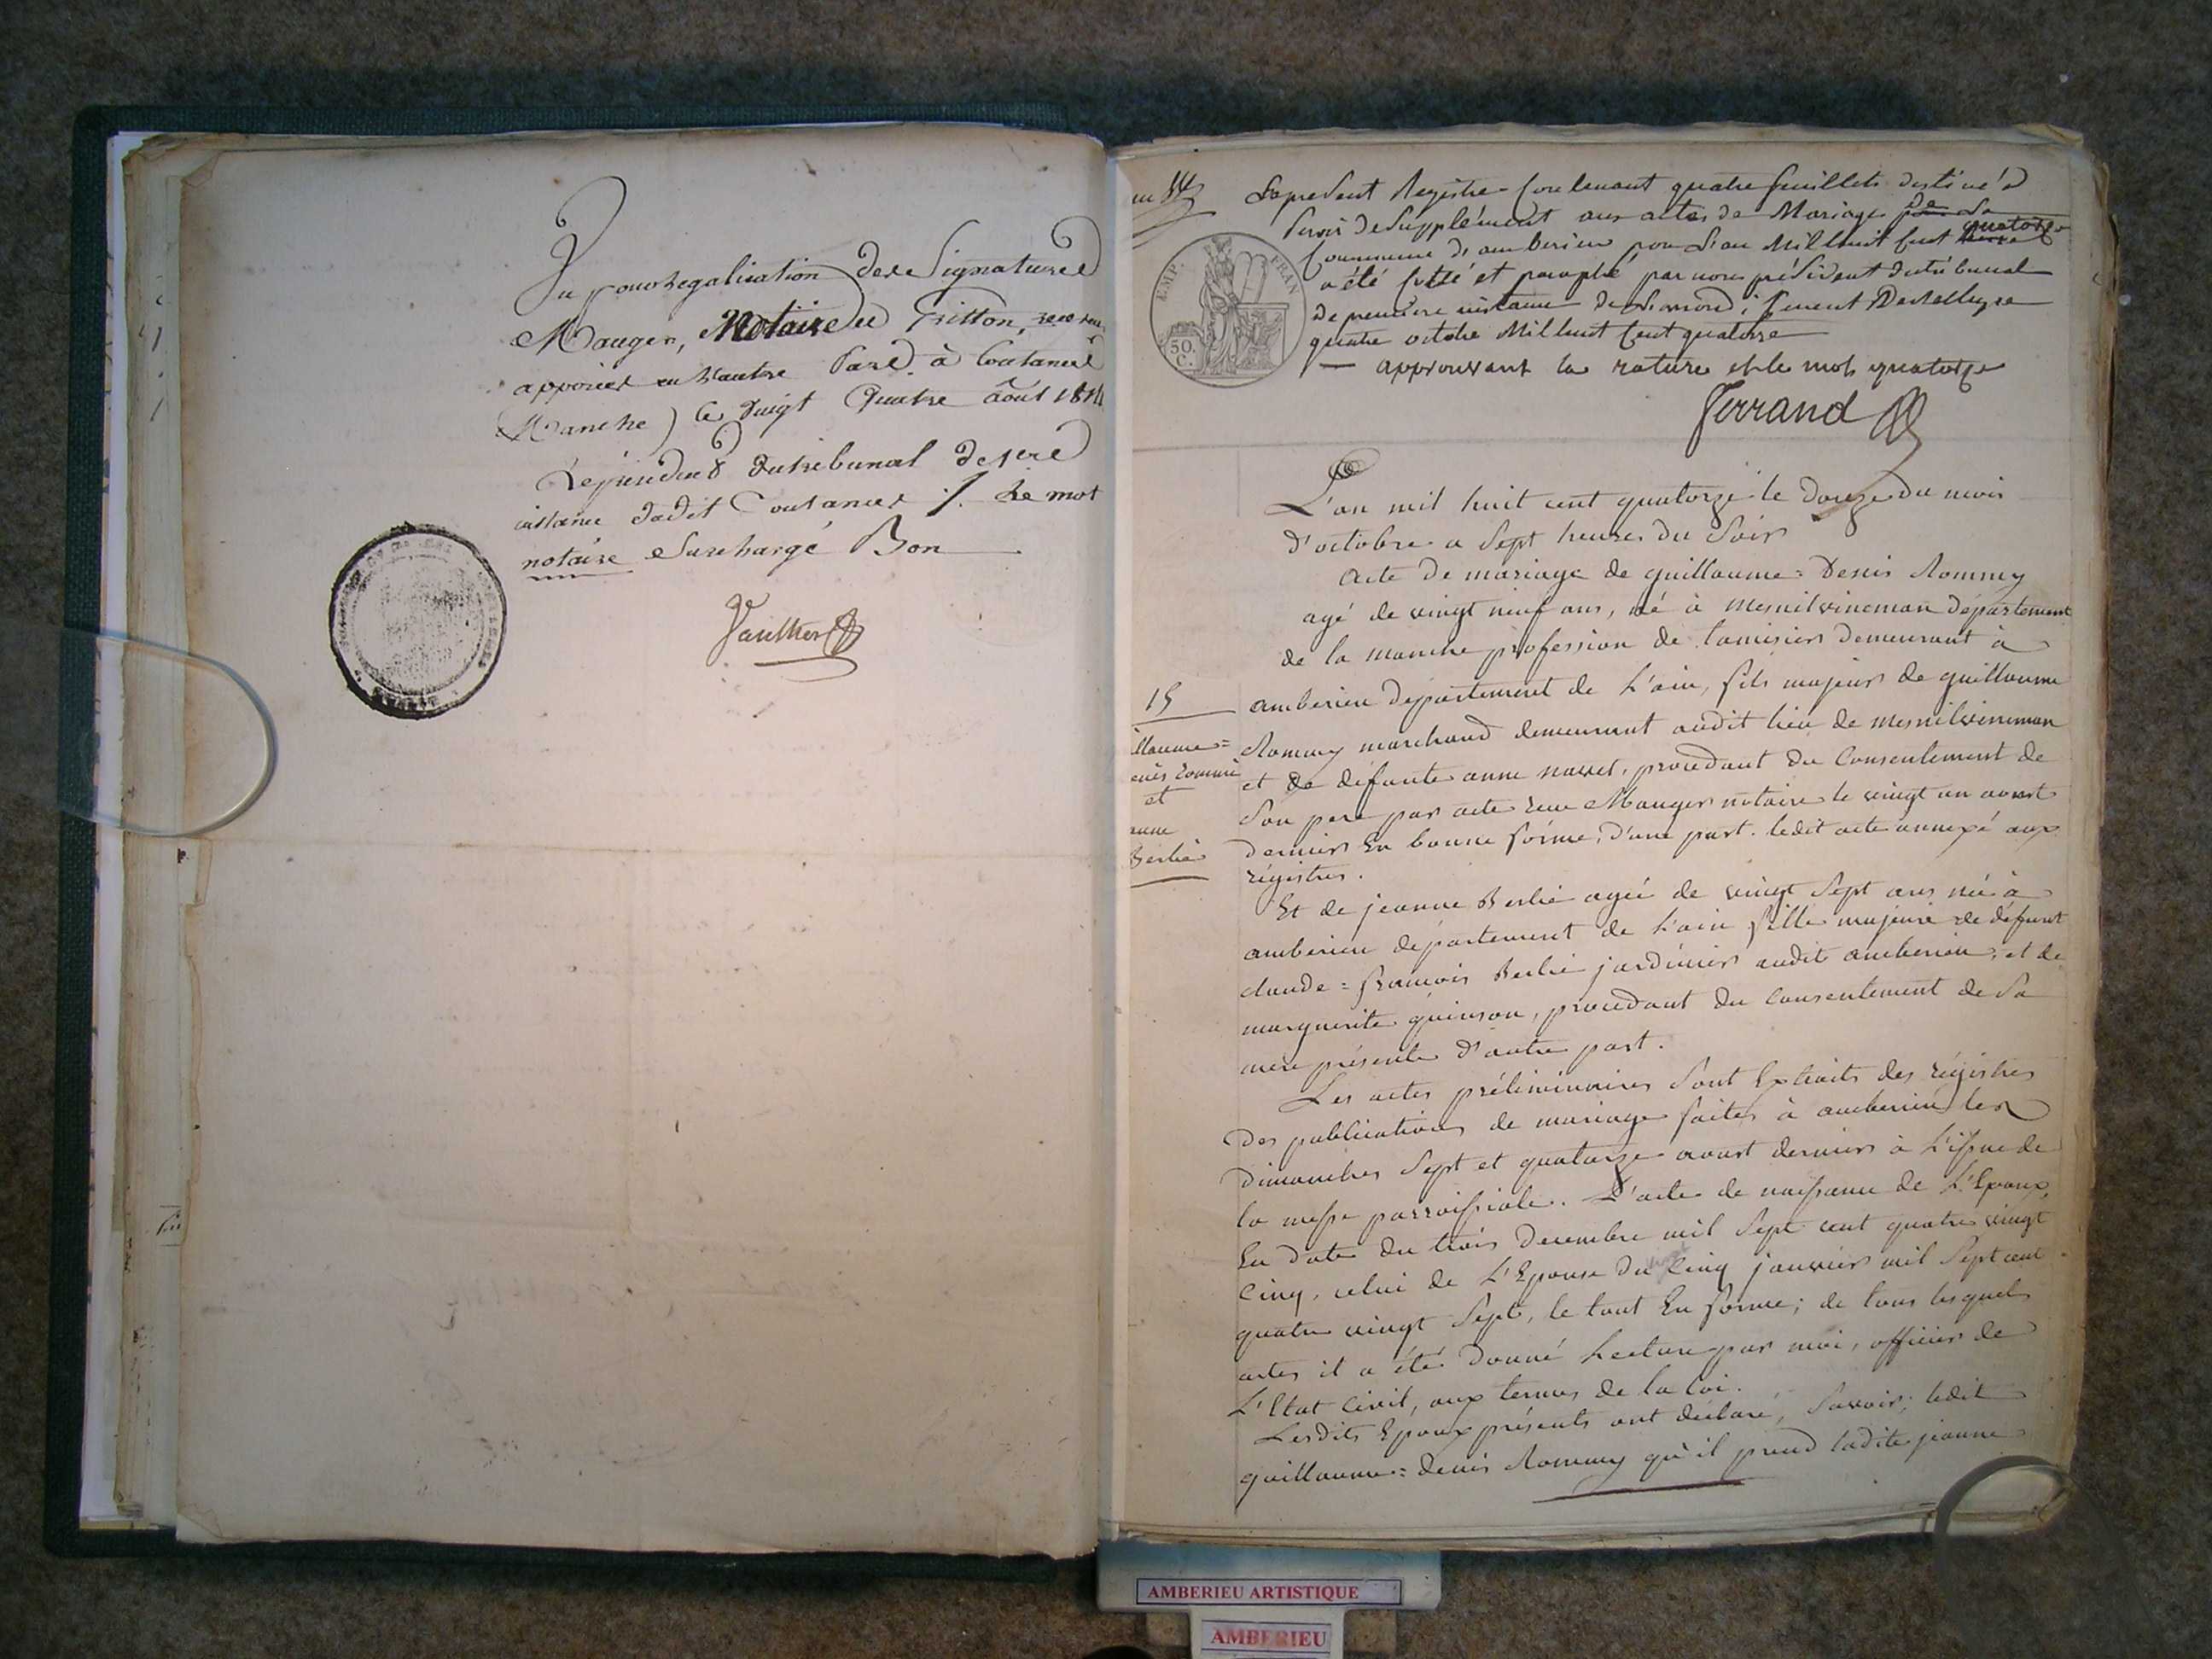 Vu pour Legalisation de la Signature de
Mauger, Notaire de
apposée en l'autre Part. à Coutances
Manche) le Vingt Quatre août 1814
Le président du tribunal de 1ere
instance dudit Coutances ./. Le mot
notaire Surchargé Bon
Le present Registre contenant quatre feuillets destiné à
Servir de Supplément aux actes de Mariage de La
quatorze
Commune d'amberieu pour L'an Mil huit Cent
a été cotté et paraphé par nous président du tribunal
de premiere instance de
quatre octobre Mil huit Cent quatorze
approuvant la rature et le mot quatorze
Ferrand
EMP. FRAN
50.
C.
L'an mil huit cent quatorze le Douze du mois
D'octobre a Sept heures Du Soir
Acte De mariage de guillaume = Denis Rommy
agé de vingt neuf ans, né à mesnilvineman Département
de la manche profession de tamisier Demeurant à
amberieu Département de L'ain, fils majeur de guillaume
Rommy marchand demeurant audit lieu de mesnilvineman
et de défunte anne, procedant du Consentement de
Son pere par acte recu Mauger notaire le vingt un aoust
dernier En bonne forme, d'une part. ledit acte annexé aux
régistres.
15
illaume =
enis
et
anne
Berlié
Et de jeanne Berlié agée de vingt Sept ans née à
amberieu département de L'ain fille majeure de défunt
claude = francois Berlié jardinier audit amberieu, et de
marguerite quinson, procedant du Consentement de Sa
mere présente D'autre part.
Les actes préliminaires Sont Extraits des régistres
Des publications de mariage faites à amberieu les
Dimanches Sept et quatorze aoust dernier à L'issue de
la messe parroissiale. L'acte de naissance de L'Epoux,
En Date du trois Decembre mil Sept cent quatre vingt
Cinq, celui de L'Epouse Du Cinq janvier mil Sept cent
quatre vingt Sept, le tout En forme; de tous lesquels
actes il a été Donné Lecture par moi, officier de
L'Etat Civil, aux termes de la loi.
Lesdits Epoux présents ont déclaré, Savoir; ledit
guillaume = denis Rommy qu'il prend ladite jeanne
AMBERIEU ARTISTIQUE
AMBERIEU